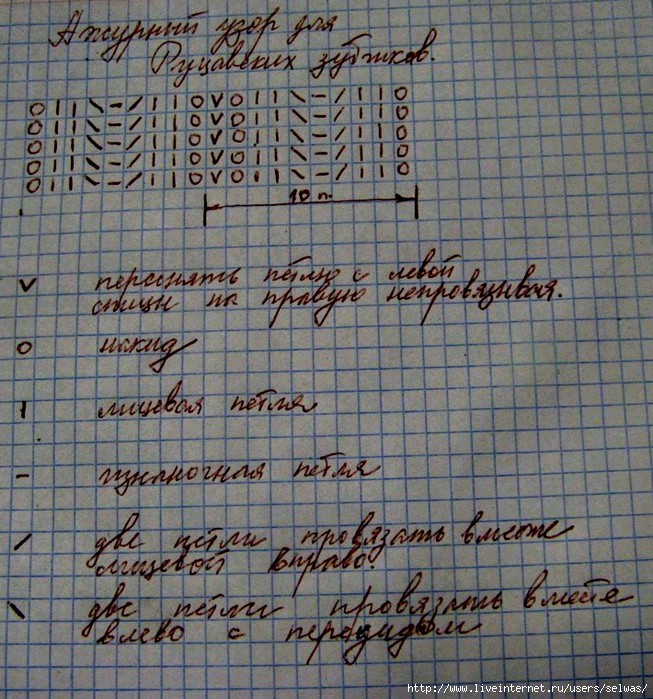 Ажурный узор для
Руцавских зубчиков.
O | | \ – / | | O V O | | \ – / | | O
O | | \ – / | | O V O | | \ – / | | O
O | | \ – / | | O V O | | \ – / | | O
O | | \ – / | | O V O | | \ – / | | O
O | | \ – / | | O V O | | \ – / | | O
10 п.
V переснять петлю с левой
спицы на правую непровязывая.
O накид
| лицевая петля
– изнаночная петля
/ две петли провязать вместе
лицевой вправо
\ две петли провязать вместе
влево с
http://www.liveinternet.ru/users/selwas/